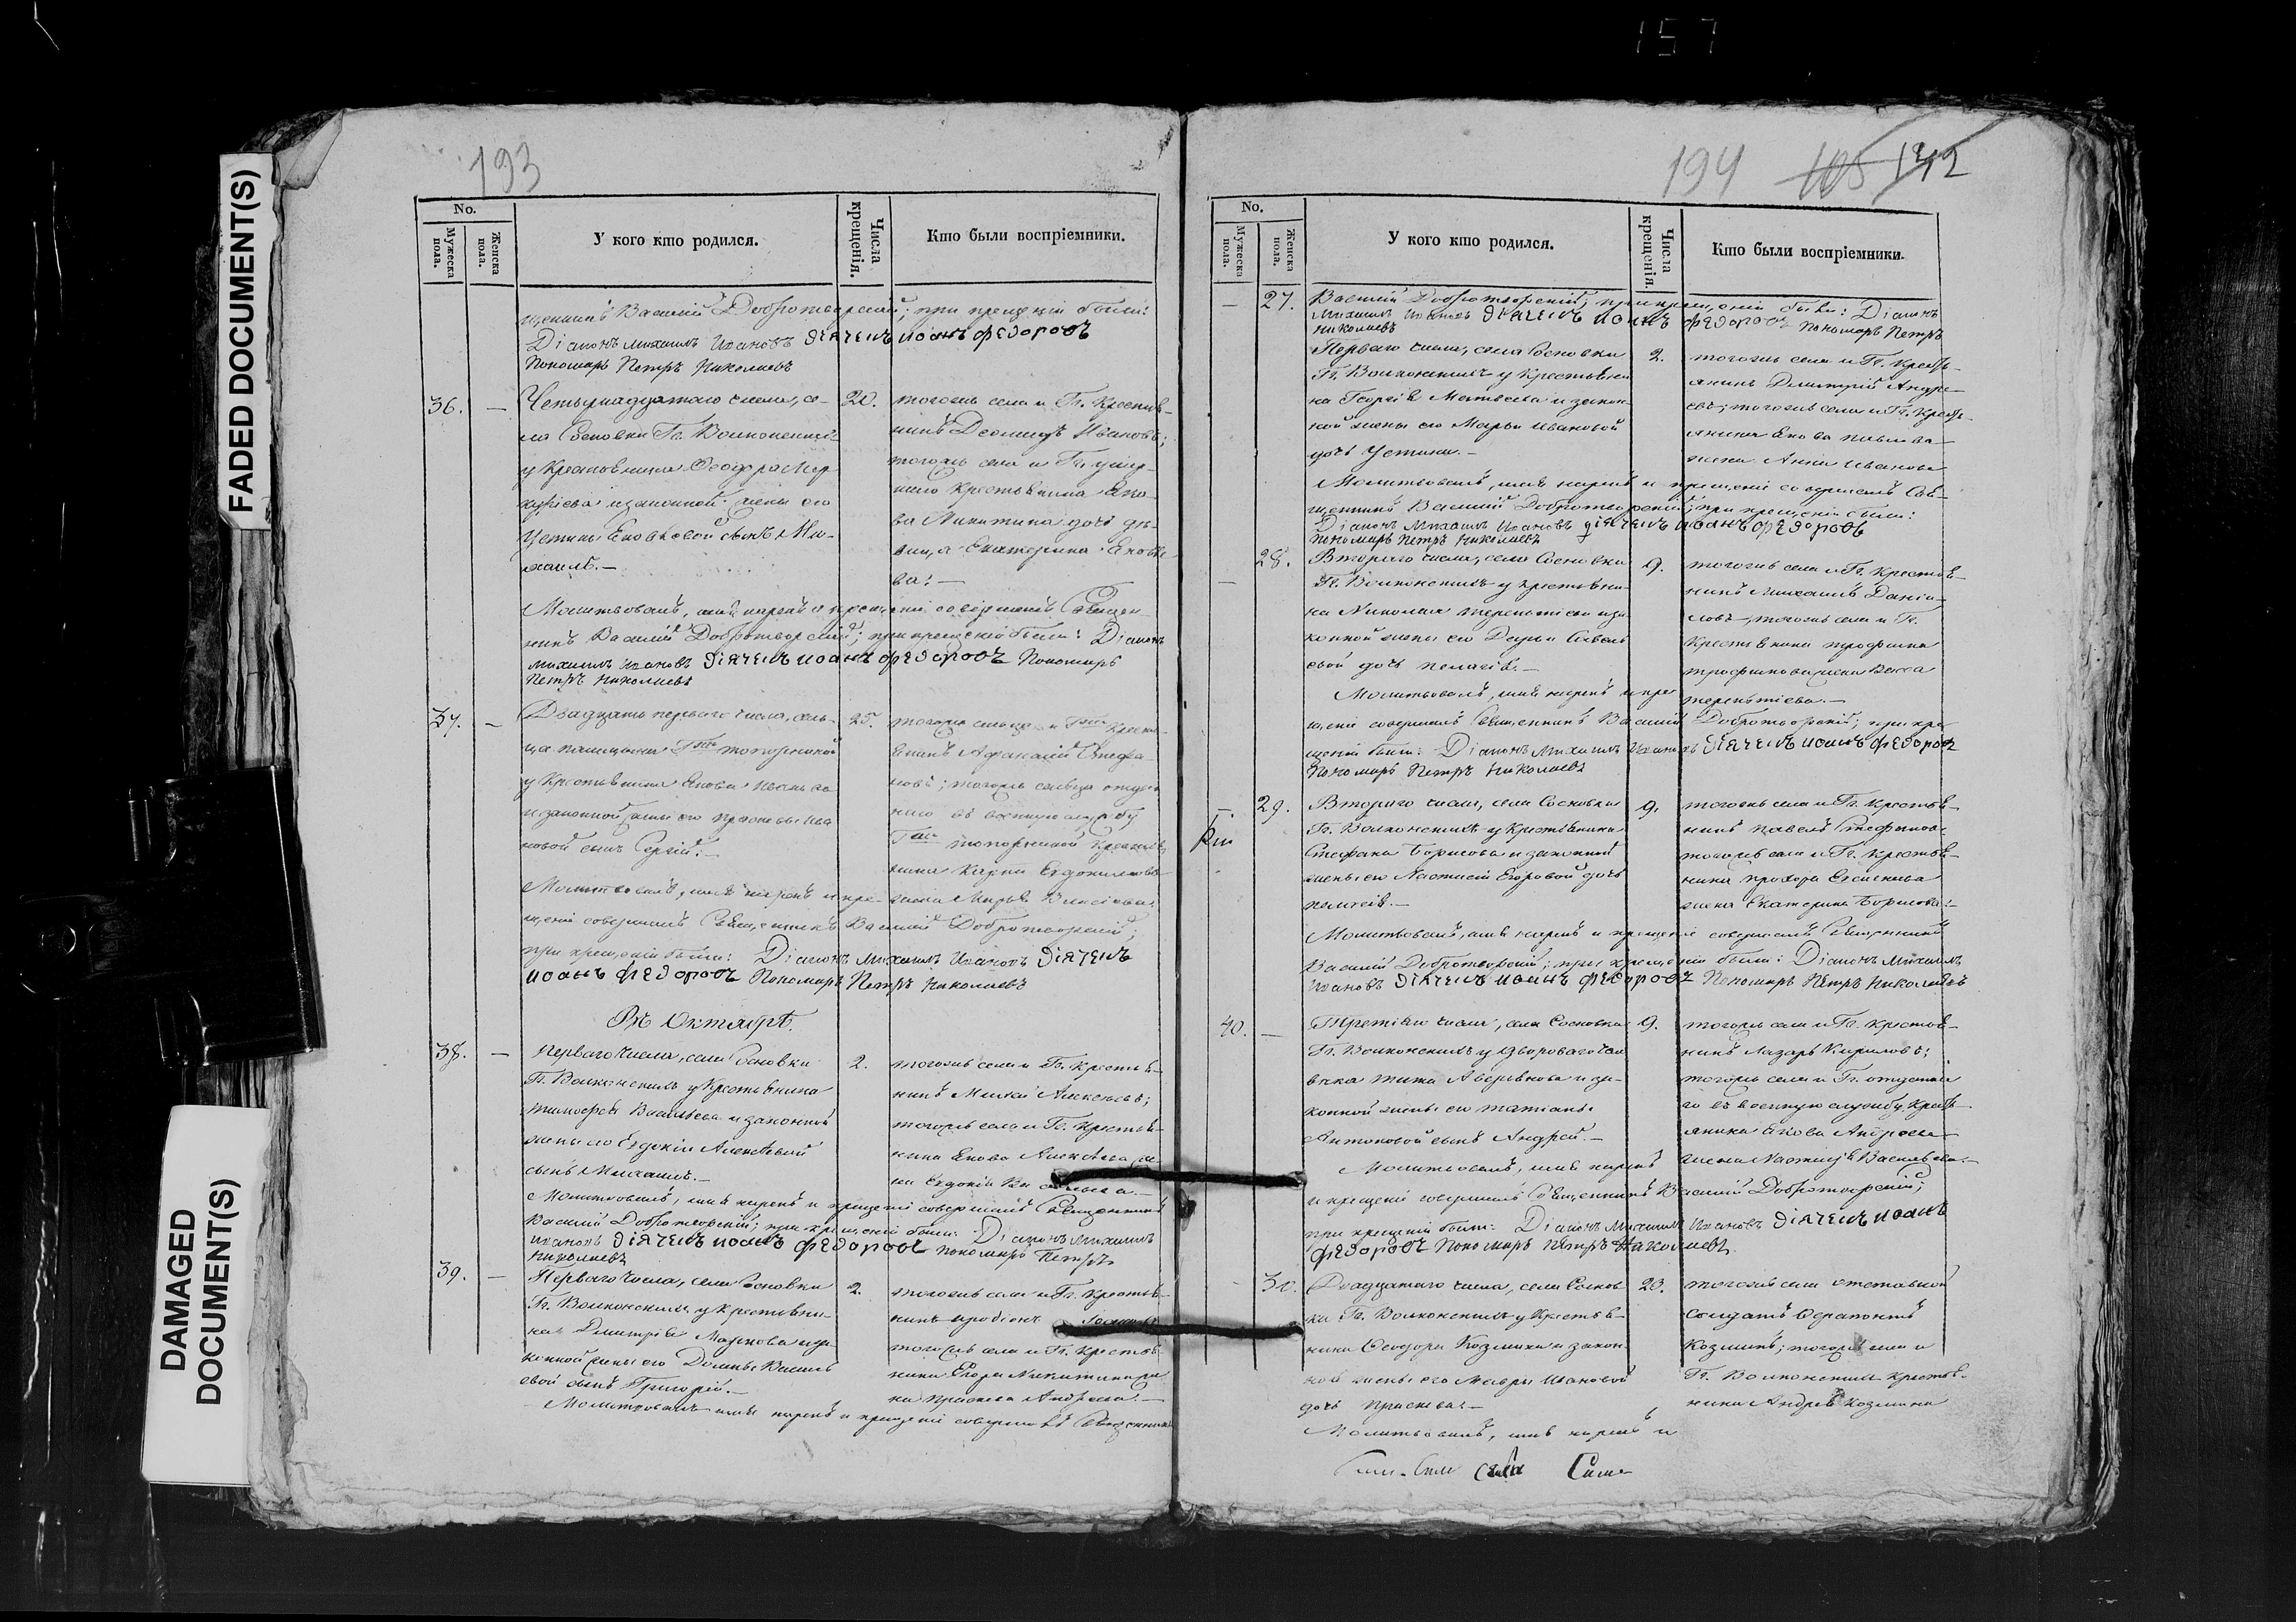 157
FADED DOCUMENT(S)
DAMAGED DOCUMENT(S)
193
No.
Мужеска пола.
Женска пола.
У кого кто родился.
Числа крещенія.
Кто были воспріемники.
щенникъ Василій Добротворскій; при крещеніи были:
Діаконъ Михаилъ Ивановъ Діячекъ Иоанъ Федоровъ
Пономарь Петръ Николаевъ
36. —
Четырнадцатаго числа, се-
ла Сосновки Гг. Волконскихъ
у Крестьянина Ѳеодора
и законной жены его
Устиньи Яковлевой сынъ Ми-
хаилъ. —
20.
тогожъ села и Гг. Крестья-
нинъ Ивановъ;
тогожъ села и Гг.
крестьянина Яко-
ва Никитина дочь дѣ-
вица Екатерина Яковле
ва. —
Молитвовалъ, имя нарекъ и крещеніе совершилъ Священ-
никъ Василій Добротворскій; при крещеніи были: Діаконъ
Михаилъ Ивановъ Діячекъ Иоанъ Федоровъ Пономарь
Петръ Николаевъ
37. —
Двадцать перваго числа, сель-
ца Гжи
у Крестьянина Якова
и законной жены его Прасковьи Ива
новой сынъ Сергій. —
25.
тогожъ сельца и Гжи Кресть
янинъ Афанасій Стефа
новъ; тогожъ сельца отдан
наго въ военную службу
Гжи Крестья
нина Карпа Евдокимова
жена Марья
Молитвовалъ, имя нарекъ и кре-
щеніе совершилъ Священникъ Василій Добротворскій;
при крещеніи были: Діаконъ Михаилъ Ивановъ Діячекъ
Иоанъ Федоровъ Пономарь Петръ Николаевъ
Въ Октябрѣ.
38. —
Перваго числа, села Сосновки
Гг. Волконскихъ у Крестьянина
Тимофея Васильева и законной
жены его Евдокіи Алексѣевой
сынъ Михаилъ. —
2.
тогожъ села и Гг. Крестья-
нинъ Алексѣевъ;
тогожъ села и Гг. Крестья-
нина Якова Алексѣева же-
на Евдокія
Молитвовалъ, имя нарекъ и крещеніе совершилъ Священникъ
Василій Добротворскій; при крещеніи были: Діаконъ Михаилъ
Ивановъ Діячекъ Иоанъ Федоровъ Пономарь Петръ
Николаевъ
39. —
Перваго числа, села Сосновки
Гг. Волконскихъ у Крестьяни-
на Димитрія Маркова и за-
конной жены его Домны Василь
евой сынъ Григорій. —
2.
тогожъ села и Гг. Крестья-
нинъ
тогожъ села и Гг. Крестья-
нина Егора Никитина же
на Андреева. —
Молитвовалъ имя нарекъ и крещеніе совершилъ Священникъ
194 105 142
No.
Мужеска пола.
Женска пола.
У кого кто родился.
Числа крещенія.
Кто были воспріемники.
Василій Добротворскій; при крещеніи были: Діаконъ
Михаилъ Ивановъ Діячекъ Иоанъ Федоровъ Пономарь Петръ
Николаевъ
— 27.
Перваго числа, села Сосновки
Гг. Волконскихъ у Крестьяни
на Георгія Матвеева и закон-
ной жены его Марьи Ивановой
дочь Устинья. —
2.
тогожъ села и Гг. Крестья-
янинъ Димитрій Андре-
евъ; тогожъ села и Гг. Кресть-
янина Якова Павлова
жена Анна Иванова
Молитвовалъ, имя нарекъ и крещеніе совершилъ Свя-
щенникъ Василій Добротворскій; при крещеніи были:
Діаконъ Михаилъ Ивановъ Діячекъ Иоанъ Федоровъ
Пономарь Петръ Николаевъ
— 28.
Втораго числа, села Сосновки
Гг. Волконскихъ у крестьяни-
на Николая Терентіева и за-
конной жены его Дарьи Савель
евой дочь Пелагія. —
9.
тогожъ села и Гг. Крестья-
нинъ Михаилъ Дани-
ловъ; тогожъ села и Гг.
Крестьянина Трофима
Трофимова жена Васса
Терентіева. —
Молитвовалъ, имя нарекъ и кре
щеніе совершилъ Священникъ Василій Добротворскій; при кре
щеніи были: Діаконъ Михаилъ Ивановъ Діячекъ Иоанъ Федоровъ
Пономарь Петръ Николаевъ
— 29.
Втораго числа, села Сосновки
Гг. Волконскихъ у Крестьянина
Стефана Борисова и законной
жены его Настасіи Егоровой дочь
Пелагія. —
9.
тогожъ села и Гг. Крестья-
нинъ Павелъ Стефановъ
тогожъ села и Гг. Крестья-
нина Прохора
жена Екатерина Борисова. —
Молитвовалъ, имя нарекъ и крещеніе совершилъ Священникъ
Василій Добротворскій; при крещеніи были: Діаконъ Михаилъ
Ивановъ Діячекъ Иоанъ Федоровъ Пономарь Петръ Николаевъ
40. —
Третьяго числа, села Сосновки
Гг. Волконскихъ у двороваго чело
вѣка и за-
конной жены его Татіаны
Антоновой сынъ Андрей. —
9.
тогожъ села и Гг. Крестья-
нинъ Лазарь Кириловъ;
тогожъ села и Гг. отданна
го въ военную службу Кресть
янина Якова Андреева
жена Настасья Васильева. —
Молитвовалъ, имя нарекъ
и крещеніе совершилъ Священникъ Василій Добротворскій;
при крещеніи были: Діаконъ Михаилъ Ивановъ Діячекъ Иоанъ
Федоровъ Пономарь Петръ Николаевъ.
— 30.
Двадцатаго числа, села Соснов
ки Гг. Волконскихъ у Крестья-
нина Ѳеодора Козмина и закон-
ной жены его Мавры Ивановой
дочь Прасковья. —
23.
тогожъ села отставной
Солдатъ Ѳерапонтъ
Козминъ; тогожъ села и
Гг. Волконскихъ крестья-
нина Андрея Козмина
Молитвовалъ, имя нарекъ и